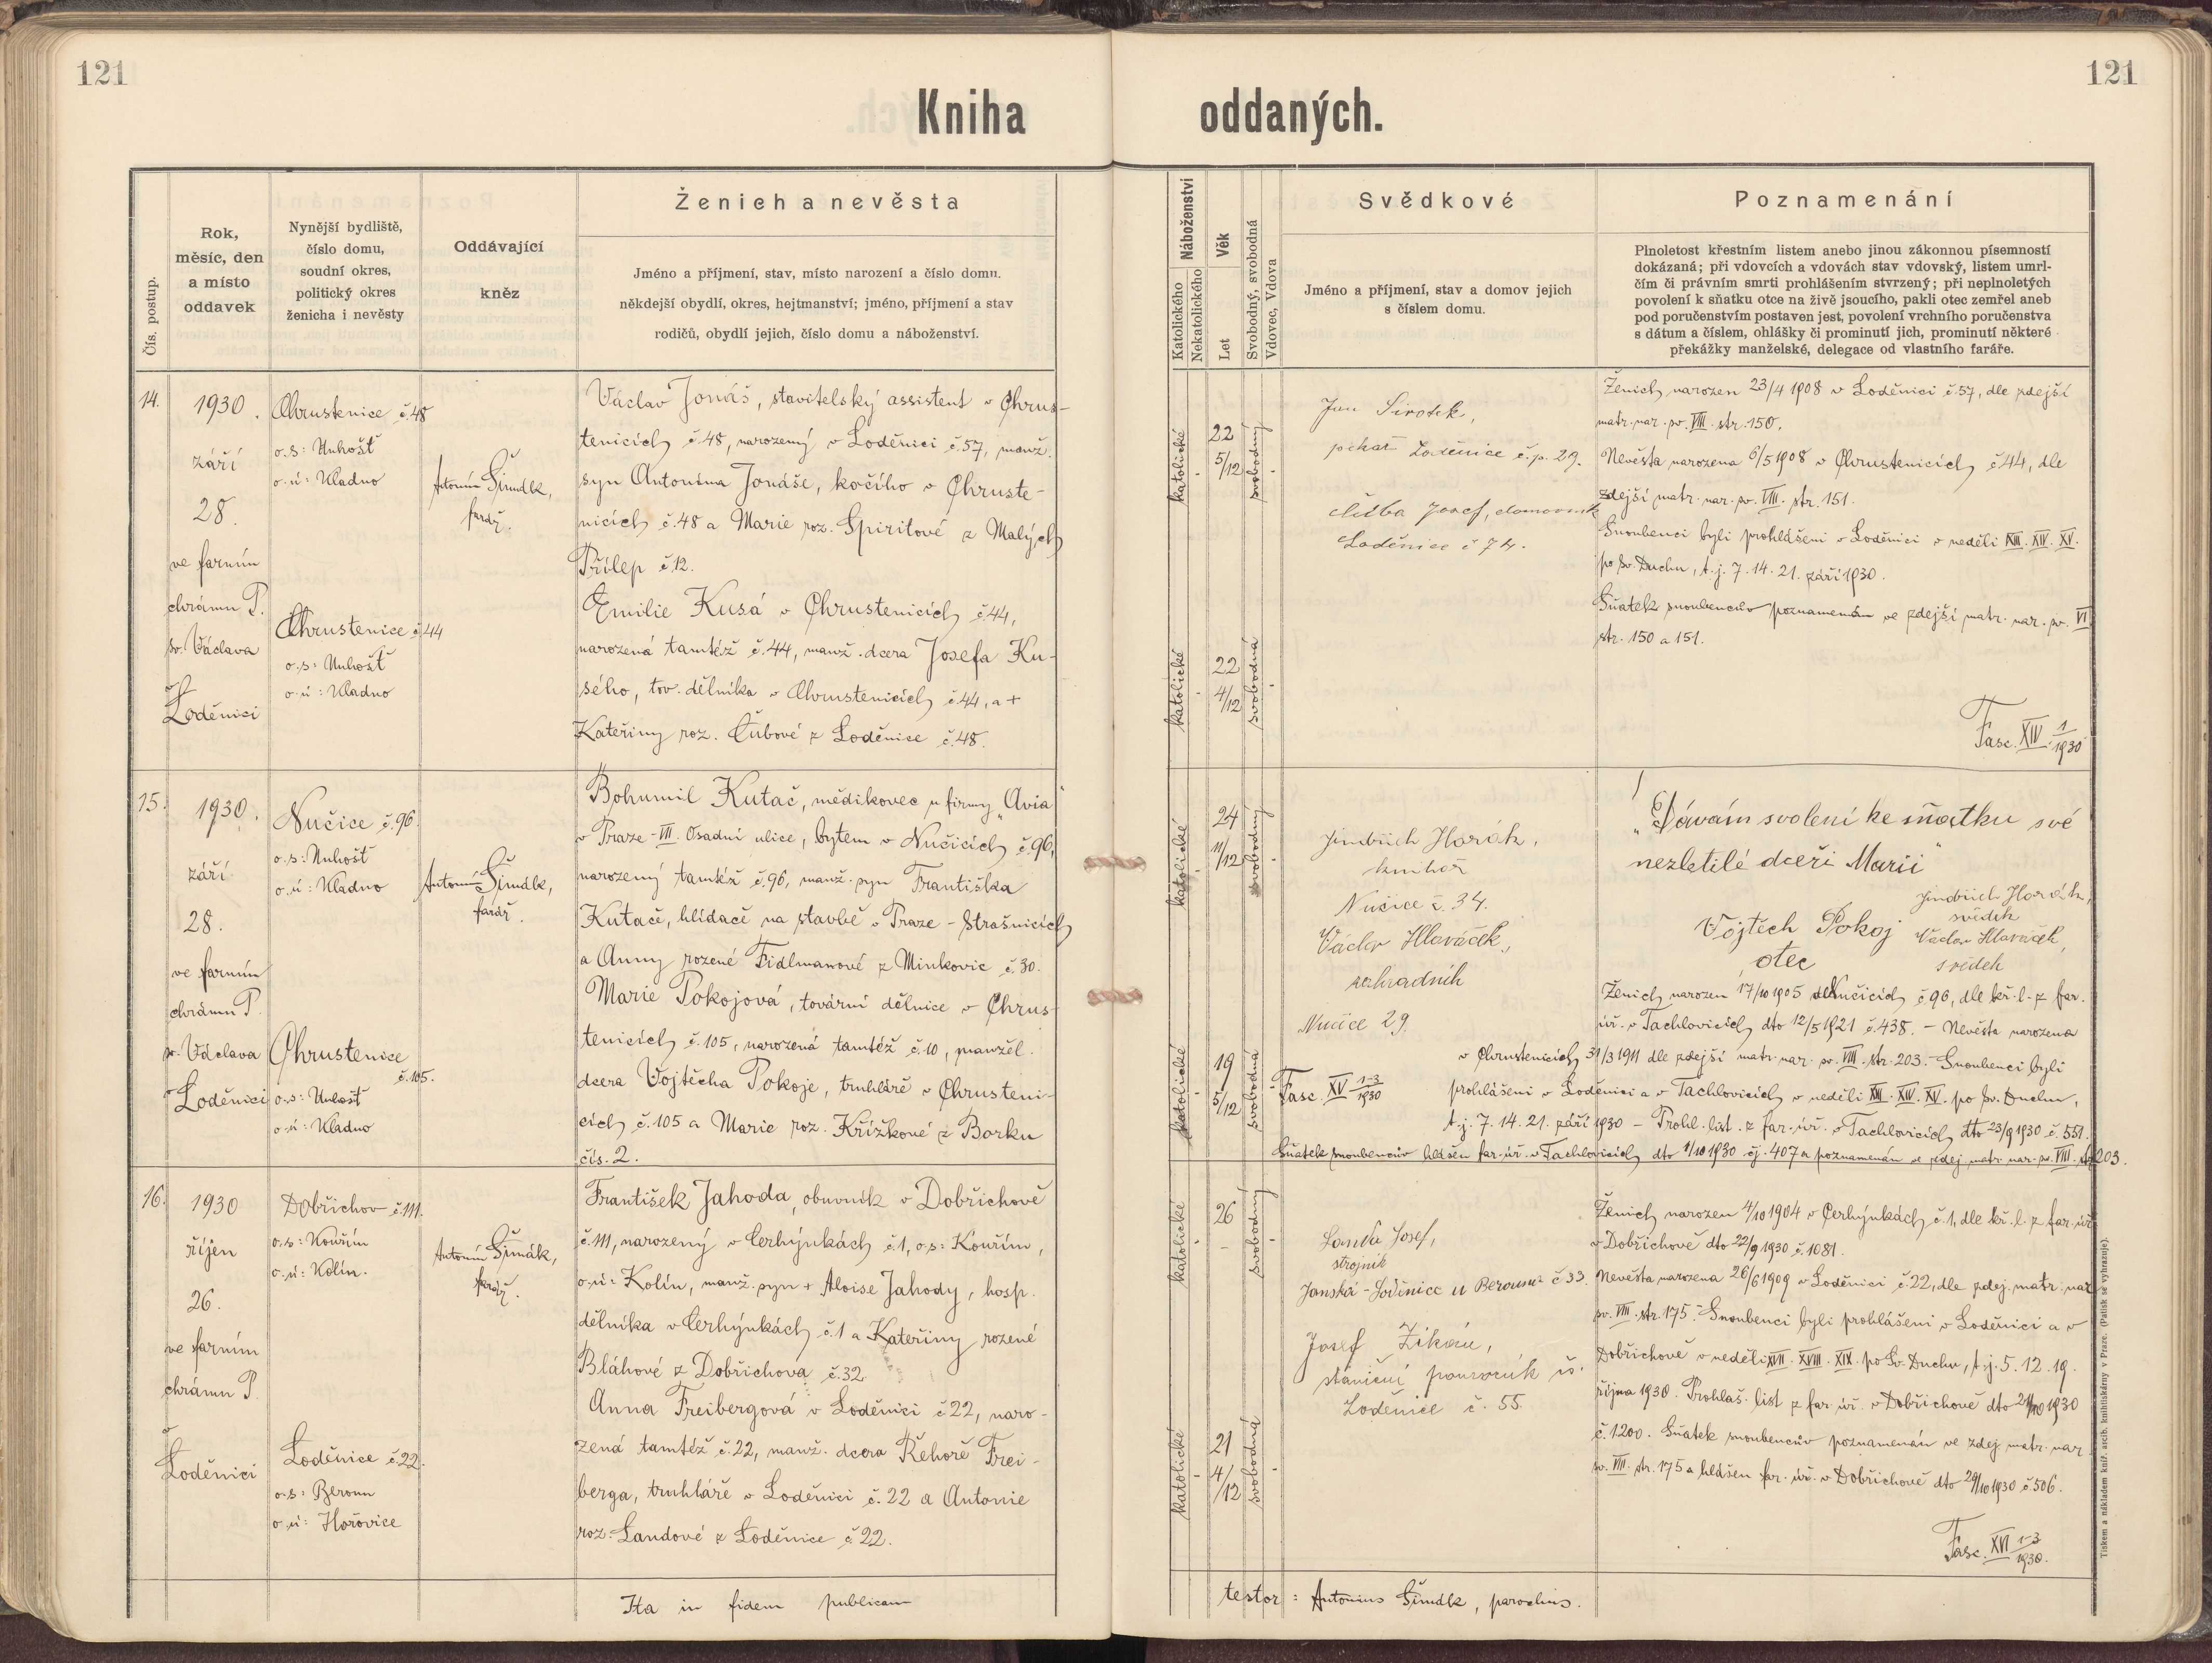 121
121
Kniha oddaných.
Čís. postup.
Rok, měsíc, den a místo oddavek
Nynější bydliště, číslo domu, soudní okres, politický okres ženicha i nevěsty
Oddávající kněz
Ženich a nevěsta
Jméno a příjmení, stav, místo narození a číslo domu.
někdejší obydlí, okres, hejtmanství; jméno, příjmení a stav
rodičů, obydlí jejich, číslo domu a náboženství.
Náboženství
Katolického
Nekatolického
Věk
Let
Svobodný, svobodná
Vdovec, Vdova
Svědkové
Jméno a příjmení, stav a domov jejich
s číslem domu.
Poznamenání
Plnoletost křestním listem anebo jinou zákonnou písemností
dokázaná; při vdovcích a vdovách stav vdovský, listem umrl-
čím či právním smrti prohlášením stvrzený; při neplnoletých
povolení k sňatku otce na živě jsoucího, pakli otec zemřel aneb
pod poručenstvím postaven jest, povolení vrchního poručenstva
s dátum a číslem, ohlášky či prominutí jich, prominutí některé
překážky manželské, delegace od vlastního faráře.
14.
1930.
září
28.
ve farním
chrámu P.
sv. Václava
v
Loděnici
Chrustenice č.48
o.s: Unhošť
o.ú: Kladno
Chrustenice č.44
o.s: Unhošť
o.ú: Kladno
Antonín Šimák,
farář.
Václav Jonáš, stavitelský assistent v Chrus-
tenicích č.48, narozený v Loděnici č.57, manž.
syn Antonína Jonáše, kočího v Chruste-
nicích č.48 a Marie roz. Spiritové z Malých
Přílep č.12.
Emilie Kusá v Chrustenicích č.44,
narozená tamtéž č.44, manž. dcera Josefa Ku-
sého, tov. dělníka v Chrustenicích č.44, a +
Kateřiny roz. Čubové z Loděnice č.48.
katolické
22
5/12
svobodný
katolické
22
4/12
svobodná
Jan Sirotek,
pekař Loděnice č.p. 29.
Josef, domovník
Loděnice č 74.
Ženich narozen 23/4 1908 v Loděnici č.57, dle zdejší
matr. nar. sv. VIII. str. 150.
Nevěsta narozena 6/5 1908 v Chrustenicích č.44, dle
zdejší matr. nar. sv. VIII. str. 151.
Snoubenci byli prohlášeni v Loděnici v neděli XIII. XIV. XV.
po sv. Duchu, t.j. 7. 14. 21. září 1930.
Sňatek snoubenců poznamenán ve zdejší matr. nar. sv. VI
str. 150 a 151.
Fasc. XIV 1/1930
15.
1930.
září
28.
ve farním
chrámu P.
sv. Václava
v Loděnici
Nučice č.96.
o.s: Unhošť
o.ú: Kladno
Chrustenice
č.105.
o.s: Unhošť
o.ú: Kladno
Antonín Šimák,
farář.
Bohumil Kutač, mědikovec u firmy „Avia“
v Praze-VII. Osadní ulice, bytem v Nučicích č.96,
narozený tamtéž č.96, manž. syn Františka
Kutače, hlídače na stavbě v Praze - Strašnicích
a Anny rozené Fidlmanové z Minkovic č.30.
Marie Pokojová, tovární dělnice v Chrus-
tenicích č.105, narozená tamtéž č.10, manžel.
dcera Vojtěcha Pokoje, truhláře v Chrusteni-
cích č.105 a Marie roz. Křížkové z Borku
čís. 2.
katolické
24
11/12
svobodný
katolické
19
5/12
svobodná
Jindřich Horák,
knihař
Nučice č. 34.
Václav Hlaváček,
zahradník
Nučice 29.
„Dávám svolení ke sňatku své
nezletilé dceři Marii“
Vojtěch Pokoj
otec
Jindřich Horák,
svědek
Václav Hlaváček,
svědek
Ženich narozen 17/10 1905 v Nučicích č.96, dle kř. l. z far.
úř. v Tachlovicích dto 12/5 1921 č.438. - Nevěsta narozena
v Chrustenicích 31/3 1911 dle zdejší matr. nar. sv. VIII. str. 203. - Snoubenci byli
Fasc. XV 1-3/1930
prohlášeni v Loděnici a v Tachlovicích v neděli XIII. XIV. XV. po sv. Duchu,
t.j. 7. 14. 21. září 1930 - Prohl. list. z far. úř. v Tachlovicích dto 23/9 1930 č. 551.
Sňatek snoubencův hlášen far. úř. v Tachlovicích dto 1/10 1930 čj. 407 a poznamenán ve zdej. matr. nar. sv. VIII. str. 203.
16.
1930
říjen
26.
ve farním
chrámu P.
v
Loděnici
Dobřichov č.111.
o.s: Kouřim
o.ú: Kolín.
Loděnice č.22.
o.s: Beroun
o.ú: Hořovice
Antonín Šimák,
farář.
František Jahoda, obuvník v Dobřichově
č.111, narozený v Cerhýnkách č.1, o.s: Kouřim,
o.ú: Kolín, manž. syn + Aloise Jahody, hosp.
dělníka v Cerhýnkách č.1 a Kateřiny rozené
Bláhové z Dobřichova č.32.
Anna Freibergová v Loděnici č.22, naro-
zená tamtéž č.22, manž. dcera Řehoře Frei-
berga, truhláře v Loděnici č.22 a Antonie
roz. Landové z Loděnice č.22.
katolické
26
svobodný
katolické
21
4/12
svobodná
Landa Josef,
strojník
Janská-Loděnice u Berouna č 33.
Josef Zikán,
staniční pomocník
Loděnice č. 55.
Ženich narozen 4/10 1904 v Cerhýnkách č.1, dle kř. l. z far. úř.
v Dobřichově dto 22/9 1930 č.1081.
Nevěsta narozena 26/6 1909 v Loděnici č.22, dle zdej. matr. nar.
sv. VIII. str. 175. - Snoubenci byli prohlášeni v Loděnici a v
Dobřichově v neděli XVII. XVIII. XIX. po Sv. Duchu, t.j. 5. 12. 19.
října 1930. Prohláš. list z far. úř. v Dobřichově dto 1930
č.1200. Sňatek snoubencův poznamenán ve zdej. matr. nar.
sv. VIII. str. 175 a hlášen far. úř. v Dobřichově dto 29/10 1930 č.506.
Fasc. XVI 1-3/1930.
Ita in fidem publicam testor: Antonius Šimák, parochus.
Tiskem a nákladem kníž. arcib. knihtiskárny v Praze. (Patisk se vyhrazuje).